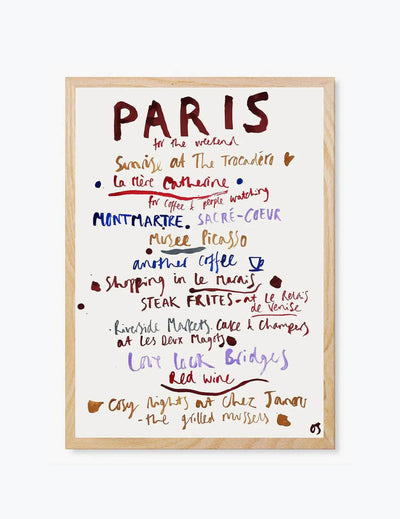 PARIS
for the weekend
Sunrise at The Trocadéro
La Mère Catherine
for coffee & people watching
MONTMARTRE. SACRÉ-COEUR
Musée Picasso
another coffee
Shopping in Le Marais
STEAK FRITES - at Le Relais
de Venise
Riverside Markets. Cake & Champers
at Les Deux Magots
Love Lock Bridges
Red wine
Cosy nights at Chez Janou
- the grilled mussels
OS